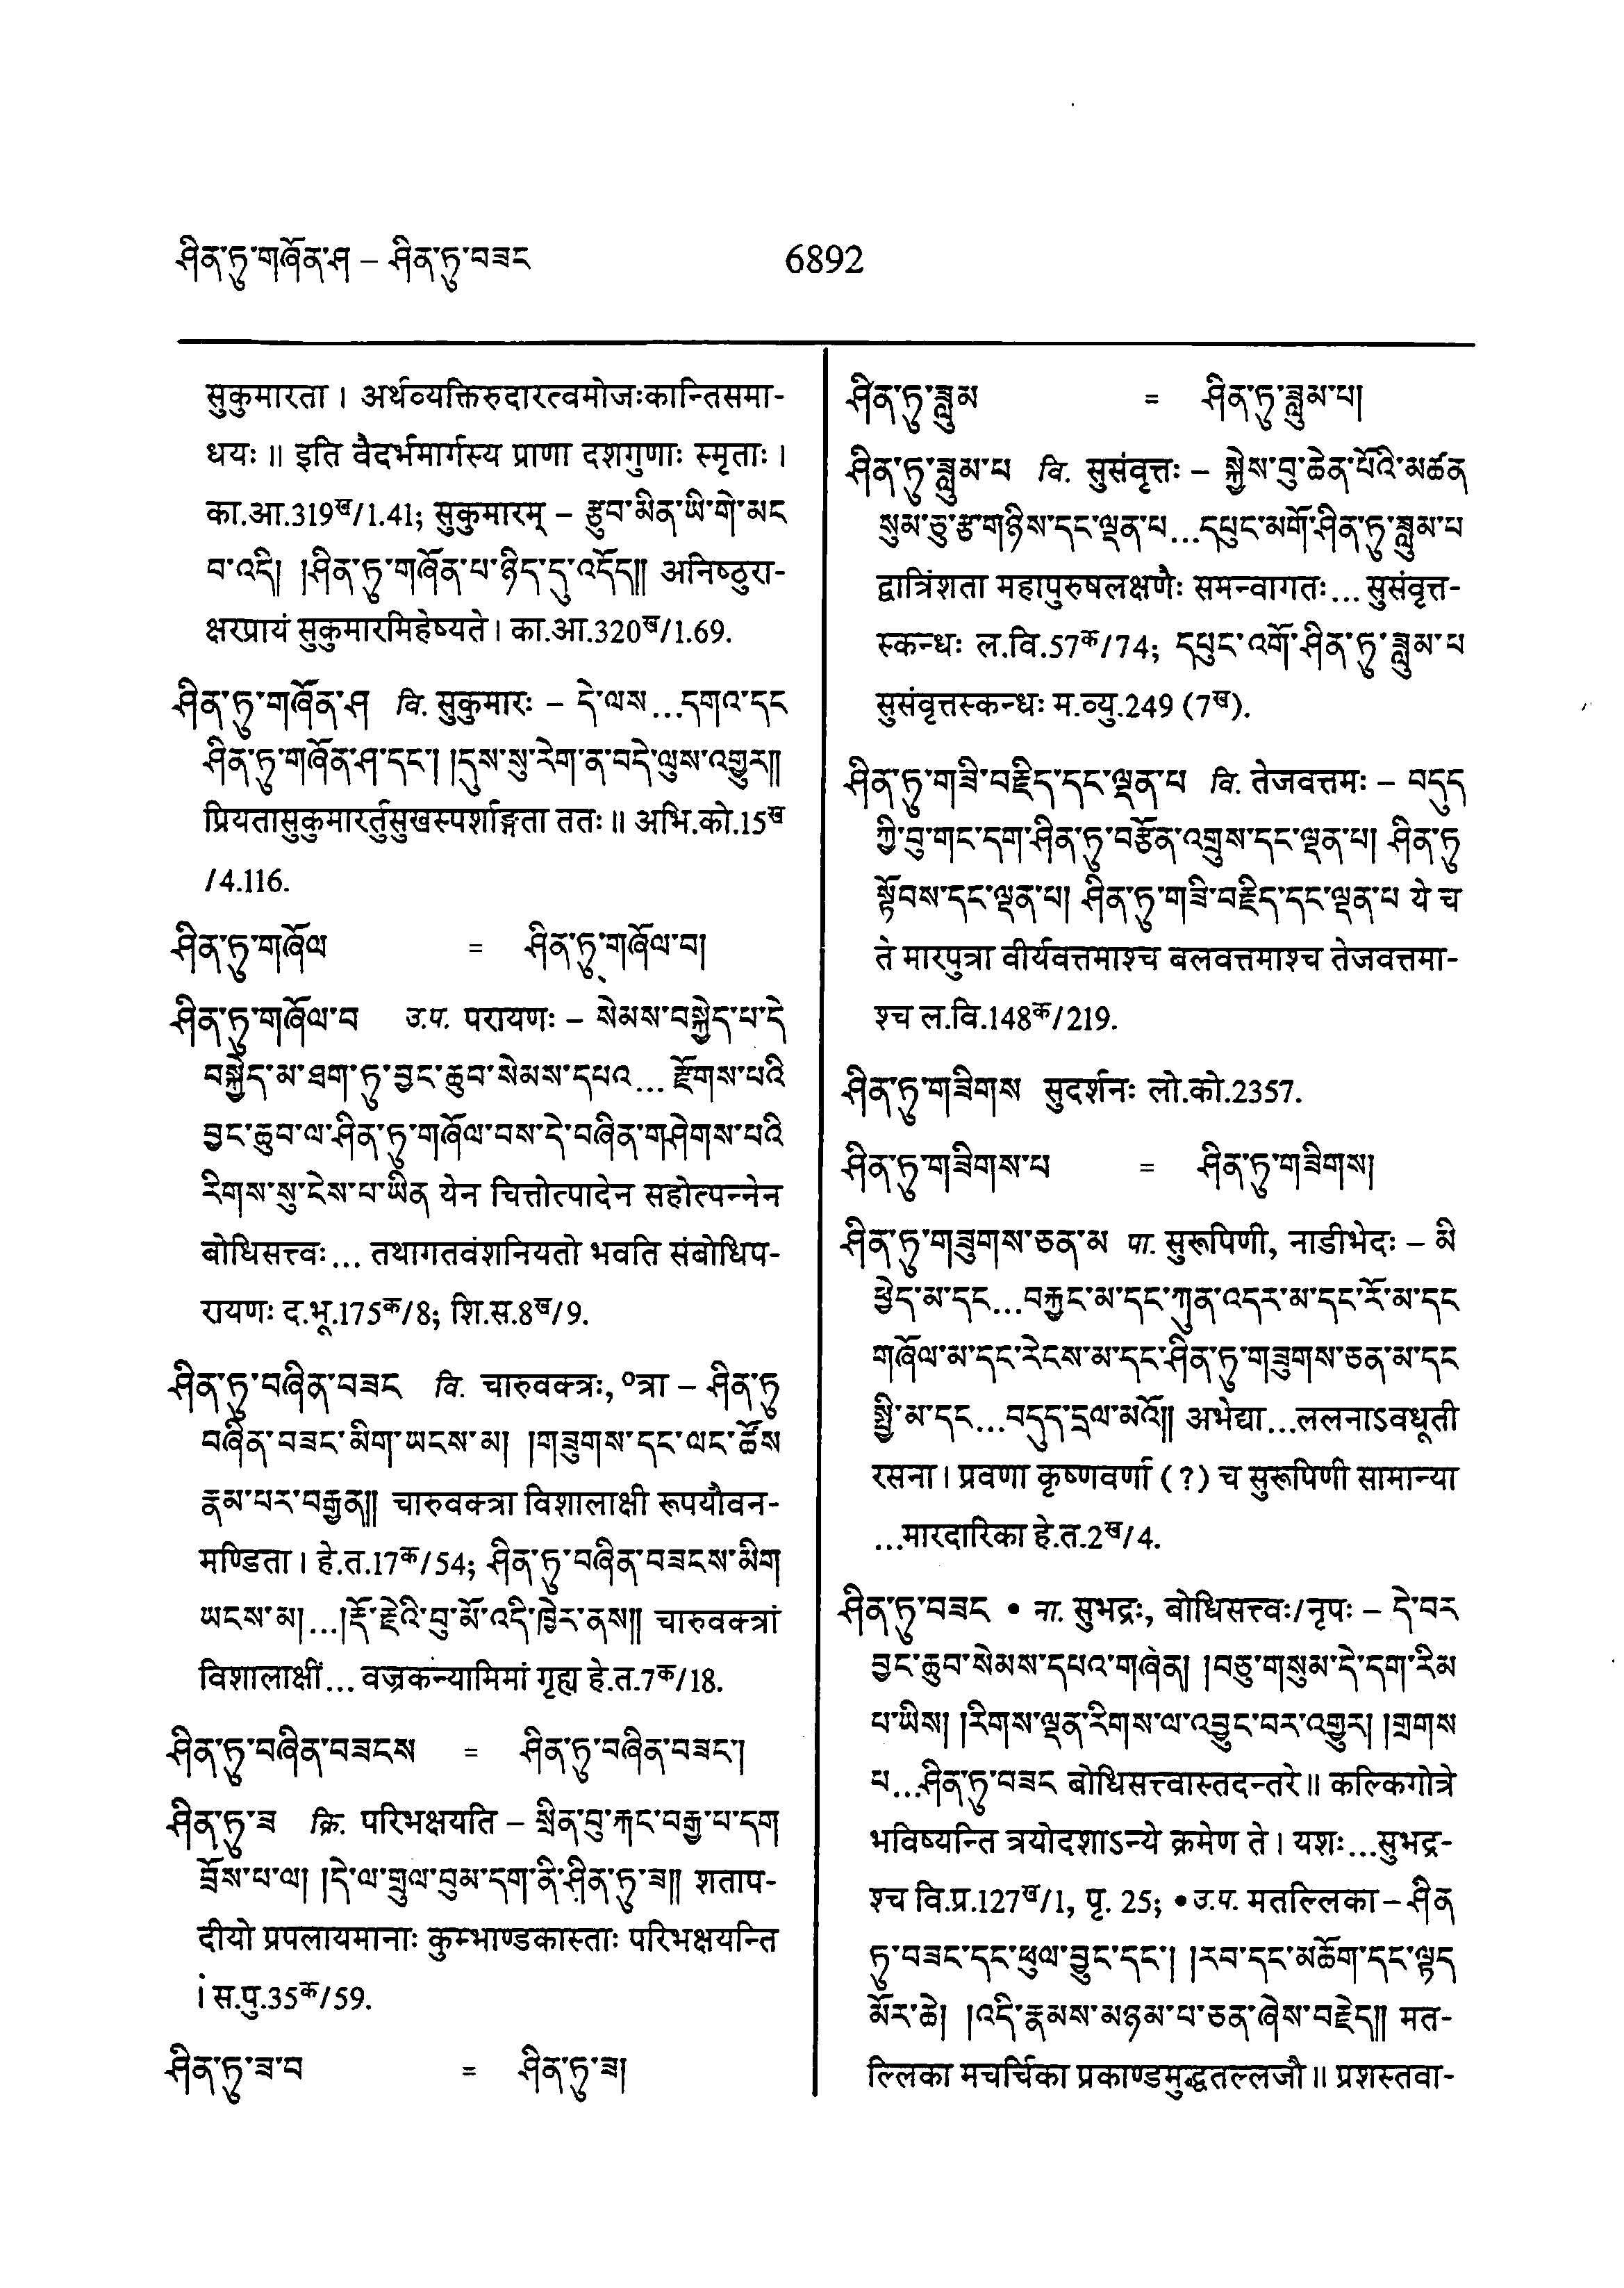 ཤིན་ཏུ་གཞོན་ཤ – ཤིན་ཏུ་བཟང
6892
सुकुमारता । अर्थव्यक्तिरुदारत्वमोजःकान्तिसमा-
धयः ॥ इति वैदर्भमार्गस्य प्राणा दशगुणाः स्मृताः ।
का.आ.319ख/1.41; सुकुमारम् – རྩུབ་མིན་ཡི་གེ་མང
བ་འདི། །ཤིན་ཏུ་གཞོན་པ་ཉིད་དུ་འདོད།། अनिष्ठुरा-
क्षरप्रायं सुकुमारमिहेष्यते । का.आ.320ख/1.69.
ཤིན་ཏུ་གཞོན་ཤ वि. सुकुमारः – དེ་ལས...དགའ་དང
ཤིན་ཏུ་གཞོན་ཤ་དང་། །དུས་སུ་རེག་ན་བདེ་ལུས་འགྱུར།།
प्रियतासुकुमारर्तुसुखस्पर्शाङ्गता ततः ॥ अभि.को.15ख
/4.116.
ཤིན་ཏུ་གཞོལ = ཤིན་ཏུ་གཞོལ་བ།
ཤིན་ཏུ་གཞོལ་བ उ.प. परायणः – སེམས་བསྐྱེད་པ་དེ
བསྐྱེད་མ་ཐག་ཏུ་བྱང་ཆུབ་སེམས་དཔའ... རྫོགས་པའི
བྱང་ཆུབ་ལ་ཤིན་ཏུ་གཞོལ་བས་དེ་བཞིན་གཤེགས་པའི
རིགས་སུ་ངེས་པ་ཡིན येन चित्तोत्पादेन सहोत्पन्नेन
बोधिसत्त्वः... तथागतवंशनियतो भवति संबोधिप-
रायणः द.भू.175क/8; शि.स.8ख/9.
ཤིན་ཏུ་བཞིན་བཟང वि. चारुवक्त्रः, ०त्रा – ཤིན་ཏུ
བཞིན་བཟང་མིག་ཡངས་མ། །གཟུགས་དང་ལང་ཚོས
རྣམ་པར་བརྒྱན།། चारुवक्त्रा विशालाक्षी रूपयौवन-
मण्डिता । हे.त.17क/54; ཤིན་ཏུ་བཞིན་བཟངས་མིག
ཡངས་མ།...།རྡོ་རྗེའི་བུ་མོ་འདི་ཁྱེར་ནས།། चारुवक्त्रां
विशालाक्षीं... वज्रकन्यामिमां गृह्य हे.त.7क/18.
ཤིན་ཏུ་བཞིན་བཟངས = ཤིན་ཏུ་བཞིན་བཟང་།
ཤིན་ཏུ་ཟ क्रि. परिभक्षयति – སྲིན་བུ་རྐང་བརྒྱ་པ་དག
བྲོས་པ་ལ། །དེ་ལ་གྲུལ་བུམ་དག་ནི་ཤིན་ཏུ་ཟ།། शताप-
दीयो प्रपलायमानाः कुम्भाण्डकास्ताः परिभक्षयन्ति
i स.पु.35क/59.
ཤིན་ཏུ་ཟ་བ = ཤིན་ཏུ་ཟ།
ཤིན་ཏུ་ཟླུམ = ཤིན་ཏུ་ཟླུམ་པ།
ཤིན་ཏུ་ཟླུམ་པ वि. सुसंवृत्तः – སྐྱེས་བུ་ཆེན་པོའི་མཚན
སུམ་ཅུ་རྩ་གཉིས་དང་ལྡན་པ...དཔུང་མགོ་ཤིན་ཏུ་ཟླུམ་པ
द्वात्रिंशता महापुरुषलक्षणैः समन्वागतः... सुसंवृत्त-
स्कन्धः ल.वि.57क/74; དཔུང་འགོ་ཤིན་ཏུ་ཟླུམ་པ
सुसंवृत्तस्कन्धः म.व्यु.249 (7ख).
ཤིན་ཏུ་གཟི་བརྗིད་དང་ལྡན་པ वि. तेजवत्तमः – བདུད
ཀྱི་བུ་གང་དག་ཤིན་ཏུ་བརྩོན་འགྲུས་དང་ལྡན་པ། ཤིན་ཏུ
སྟོབས་དང་ལྡན་པ། ཤིན་ཏུ་གཟི་བརྗིད་དང་ལྡན་པ ये च
ते मारपुत्रा वीर्यवत्तमाश्च बलवत्तमाश्च तेजवत्तमा-
श्च ल.वि.148क/219.
ཤིན་ཏུ་གཟིགས सुदर्शनः लो.को.2357.
ཤིན་ཏུ་གཟིགས་པ = ཤིན་ཏུ་གཟིགས།
ཤིན་ཏུ་གཟུགས་ཅན་མ पा. सुरूपिणी, नाडीभेदः – མི
ཕྱེད་མ་དང...བརྐྱང་མ་དང་ཀུན་འདར་མ་དང་རོ་མ་དང
གཞོལ་མ་དང་རེངས་མ་དང་ཤིན་ཏུ་གཟུགས་ཅན་མ་དང
སྤྱི་མ་དང...བདུད་དྲལ་མའོ།། अभेद्या...ललनाऽवधूती
रसना । प्रवणा कृष्णवर्णा (?) च सुरूपिणी सामान्या
...मारदारिका हे.त.2ख/4.
ཤིན་ཏུ་བཟང • ना. सुभद्रः, बोधिसत्त्वः/नृपः – དེ་བར
བྱང་ཆུབ་སེམས་དཔའ་གཞན། །བཅུ་གསུམ་དེ་དག་རིམ
པ་ཡིས། །རིགས་ལྡན་རིགས་ལ་འབྱུང་བར་འགྱུར། །གྲགས
པ...ཤིན་ཏུ་བཟང बोधिसत्त्वास्तदन्तरे ॥ कल्किगोत्रे
भविष्यन्ति त्रयोदशाऽन्ये क्रमेण ते । यशः...सुभद्र-
श्च वि.प्र.127ख/1, पृ. 25; • उ.प. मतल्लिका – ཤིན
ཏུ་བཟང་དང་ཕུལ་བྱུང་དང་། །རབ་དང་མཆོག་དང་ལྟད
མོར་ཆེ། །འདི་རྣམས་མཉམ་པ་ཅན་ཞེས་བརྗེད།། मत-
ल्लिका मचर्चिका प्रकाण्डमुद्धतल्लजौ ॥ प्रशस्तवा-